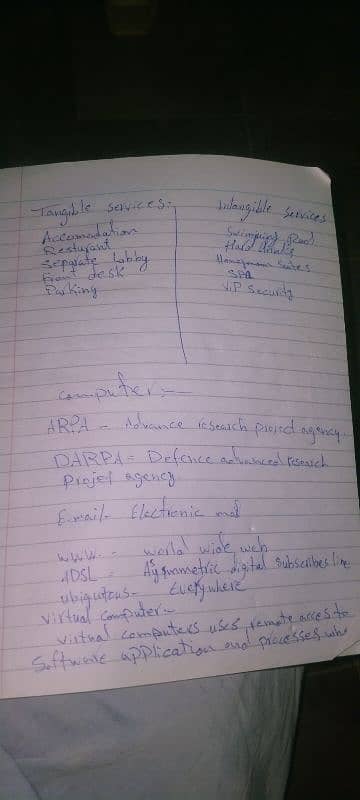 Tangible services:-
Accomodation
Resturant
Separate lobby
Front desk
Parking
Intangible services
Swimming Pool
Hard drinks
Honeymoon Suites
SPA
V.I.P Security
Computer:-
ARPA = Advance research project agency
DARPA = Defence advanced research
Projet agency
E-mail- Electronic mail
www. - world wide web
ADSL - Asymmetric digital subscribes line
ubiqutous- Everywhere
Virtual Computer:-
Virtual computers uses remote acces to
Software application and processes who